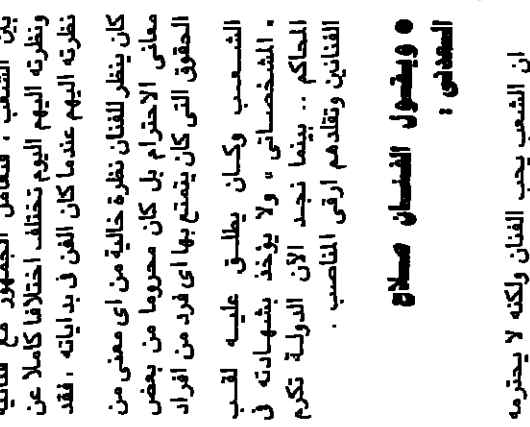 بين الشعب ، فتعامل الجمهور مع فنانيه
ونظرته اليهم اليوم تختلف اختلافا كاملا عن
نظرته اليهم عندما كان الفن فى بداياته . فقد
كان ينظر للفنان نظرة خالية من اى معنى من
معانى الاحترام بل كان محروما من بعض
الحقوق التى كان يتمتع بها اى فرد من افراد
الشعب وكان يطلق عليه لقب
« المشخصاتى » ولا يؤخذ بشهادته فى
المحاكم .. بينما نجد الآن الدولة تكرم
الفنانين وتقلدهم ارقى المناصب .
● ويقول الفنان صلاح
السعدنى :
ان الشعب يحب الفنان ولكنه لا يحترمه